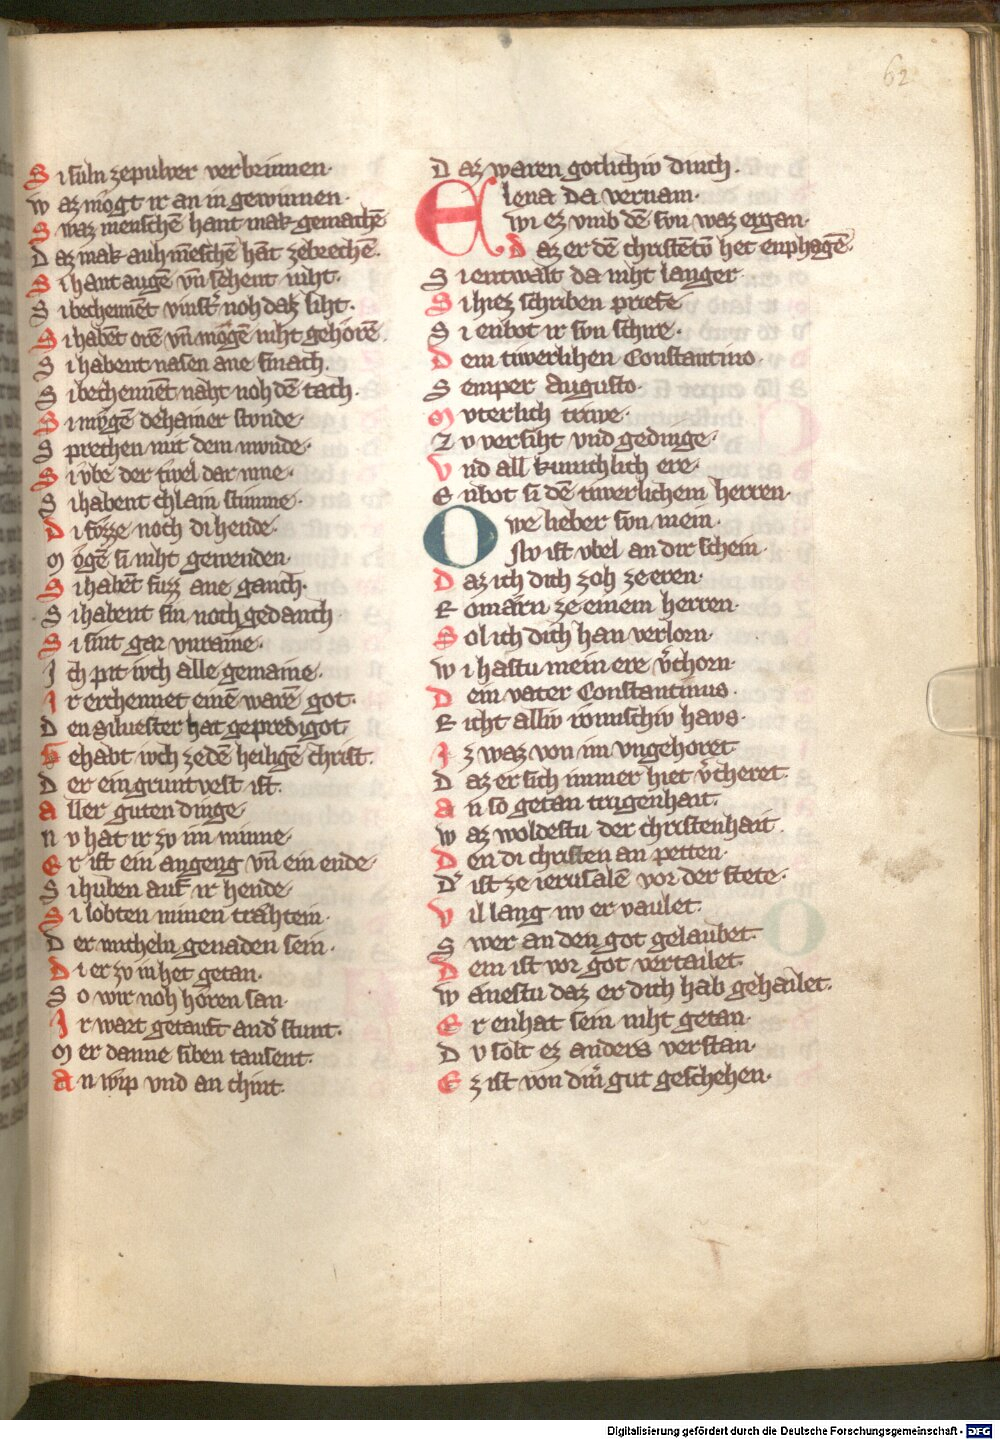 62
Si suln zepulver verbrinnen·
waz mogt ir an in gewinnen·
Swaz menschē hant mak gemachē
Daz mak auh mēschē hāt zebrechē·
Si hant augē vn̄ sehent niht·
Si bechennēt vinst̄ noh daz liht·
Si habēt orē vn̄ mogē niht gehorē·
Si habent nasen ane smach·
Si bechennēt naht noh dē tach·
Si mvgē dehainer stvnde·
Sprechen mit dem mvnde·
Si vbe der tivel dar inne·
Si habent chlain stimme·
Di fozze noch di hende·
Mogē si niht gewenden·
Si habēt fuzz ane ganch·
Si habent sin noch gedanch
Si sint gar vnraine·
Ich pit ivch alle gemaine·
Ir erchennet einē warē got·
Den silvester hat gepredigot
Gehabt ivch zedē heiligē christ·
Der ein gruntvest ist·
Aller guten dinge·
Nv hat ir zv im minne·
Er ist ein angeng vn̄ ein ende·
Si huben auf ir hende·
Si lobten minen trähtein·
Der micheln genaden sein·
Di er zv in het getan·
So wir noh horen san·
Ir wart getauft and̄ stunt·
Mer danne siben tausent·
An wip vnd an chint·
Daz waren gotlichiv dinch·
Elena da vernam·
wi ez vmb dē svn waz ergan·
Daz er dē christētō het enphagē·
Si entwalt da niht langer
Si hiez schriben priefe
Si enbot ir svn schire·
Dem tiwerlihen Constantino·
Semper Augusto·
Mvterlich triwe·
Zv versiht vnd gedinge·
Vnd all kunichlich ere·
Enbot si dē tiwerlichem herren·
Owe lieber svn mein·
Nv ist vbel an dir schein·
Daz ich dich zoh ze eren·
Romarn ze einem herren·
Sol ich dich han verlorn·
wi hastu mein ere v̄chorn·
Dein vater Constantinus·
Richt alliv romischiv havs
Iz waz von im vngehoret·
Daz er sich immer hiet v̄cheret·
An so getan trugenhait·
waz woldestu der christenhait·
Den di christen an petten·
D̄ ist ze ierusalē vor der stete·
Vil lang nv er vaulet·
Swer an den got gelaubet·
Dem ist vor got vertailet·
wänestu daz er dich hab gehailet·
Er enhat sein niht getan·
Dv solt ez anders verstan·
Ez ist von din̄ gut geschehen·
Digitalisierung gefördert durch die Deutsche Forschungsgemeinschaft - DFG